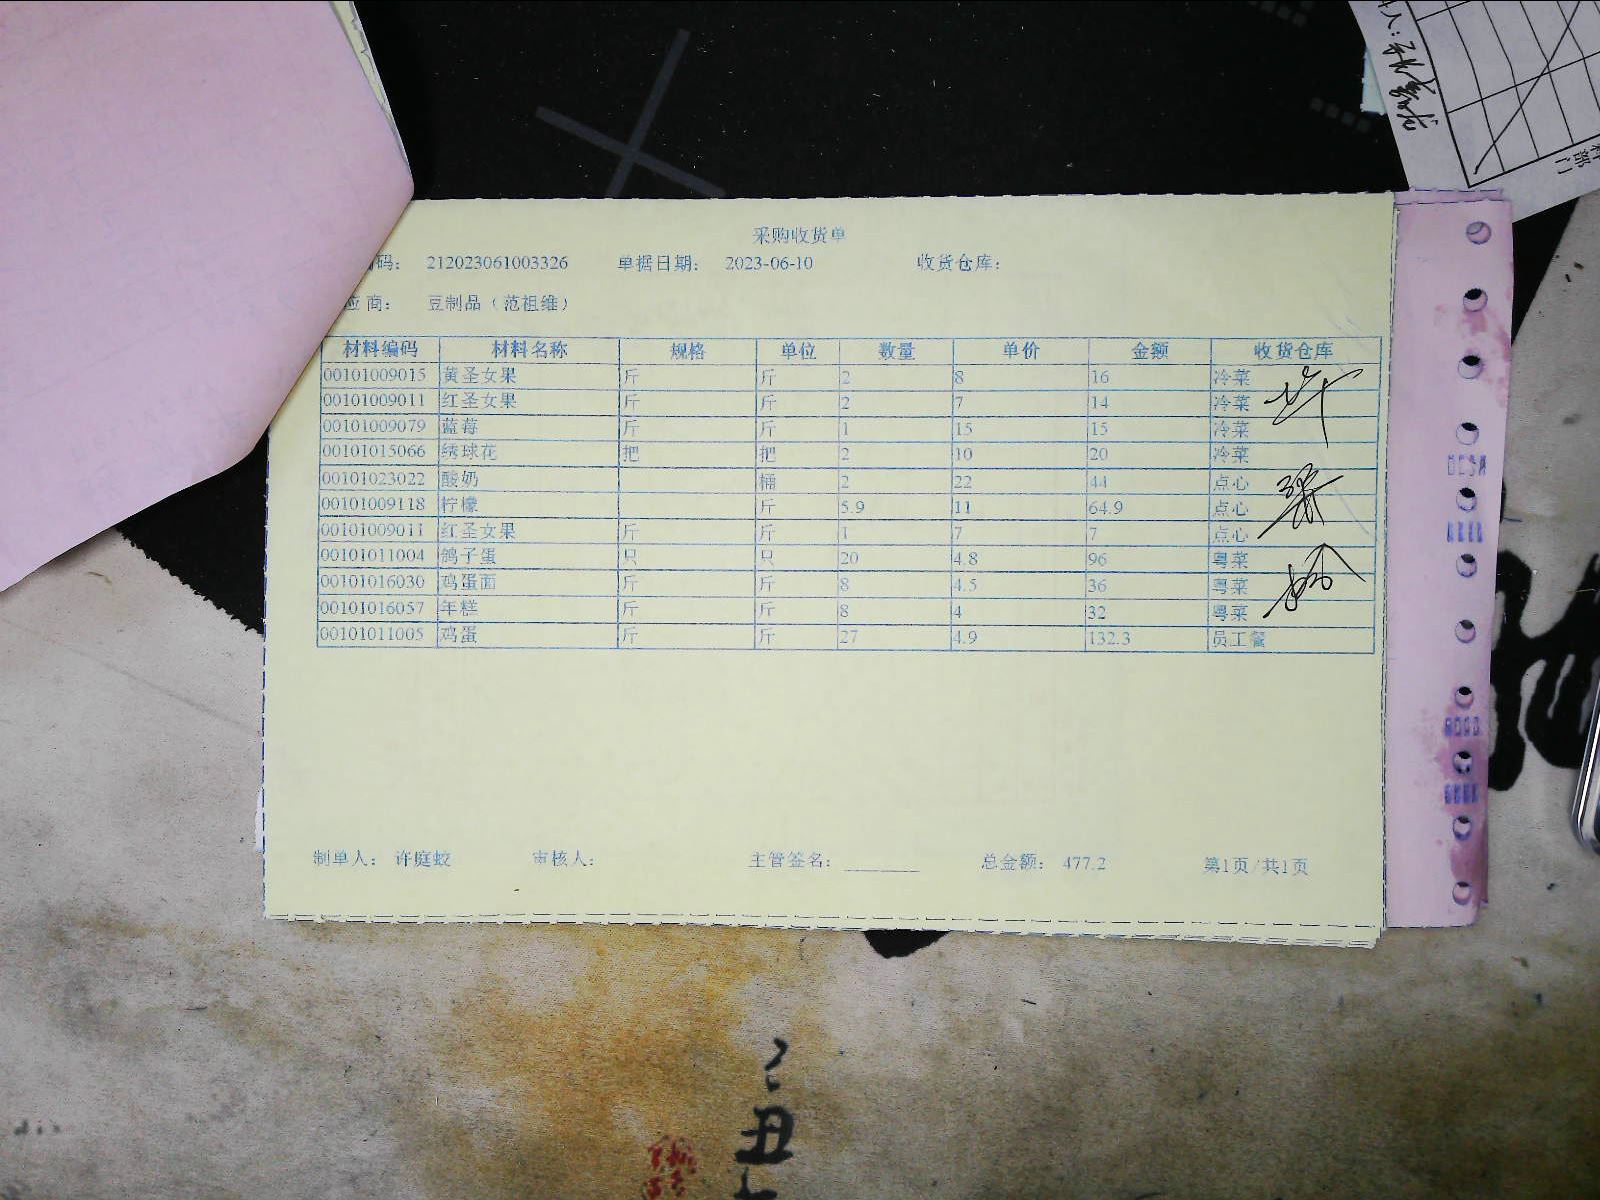 采购收货单
码： 212023061003326 单据日期： 2023-06-10 收货仓库：
应 商： 豆制品（范祖维）
材料编码 材料名称 规格 单位 数量 单价 金额 收货仓库
00101009015 黄圣女果 斤 斤 2 8 16 冷菜
00101009011 红圣女果 斤 斤 2 7 14 冷菜
00101009079 蓝莓 斤 斤 1 15 15 冷菜
00101015066 绣球花 把 把 2 10 20 冷菜
00101023022 酸奶 桶 2 22 44 点心
00101009118 柠檬 斤 5.9 11 64.9 点心
00101009011 红圣女果 斤 斤 1 7 7 点心
00101011004 鸽子蛋 只 只 20 4.8 96 粤菜
00101016030 鸡蛋面 斤 斤 8 4.5 36 粤菜
00101016057 年糕 斤 斤 8 4 32 粤菜
00101011005 鸡蛋 斤 斤 27 4.9 132.3 员工餐
制单人： 许庭蛟 审核人： 主管签名： 总金额： 477.2 第1页/共1页
人：
部门
丑